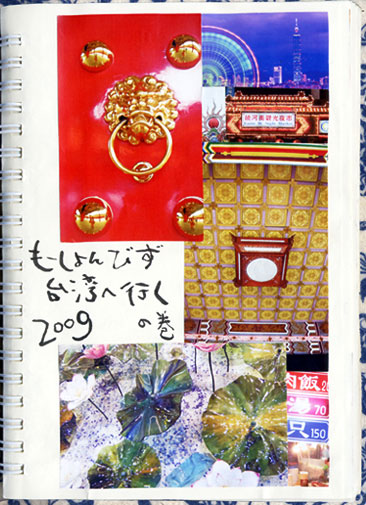 饒河街觀光夜市
もーしょんびず
台湾へ行く
2009 の巻
肉飯 20
湯 70
只 150